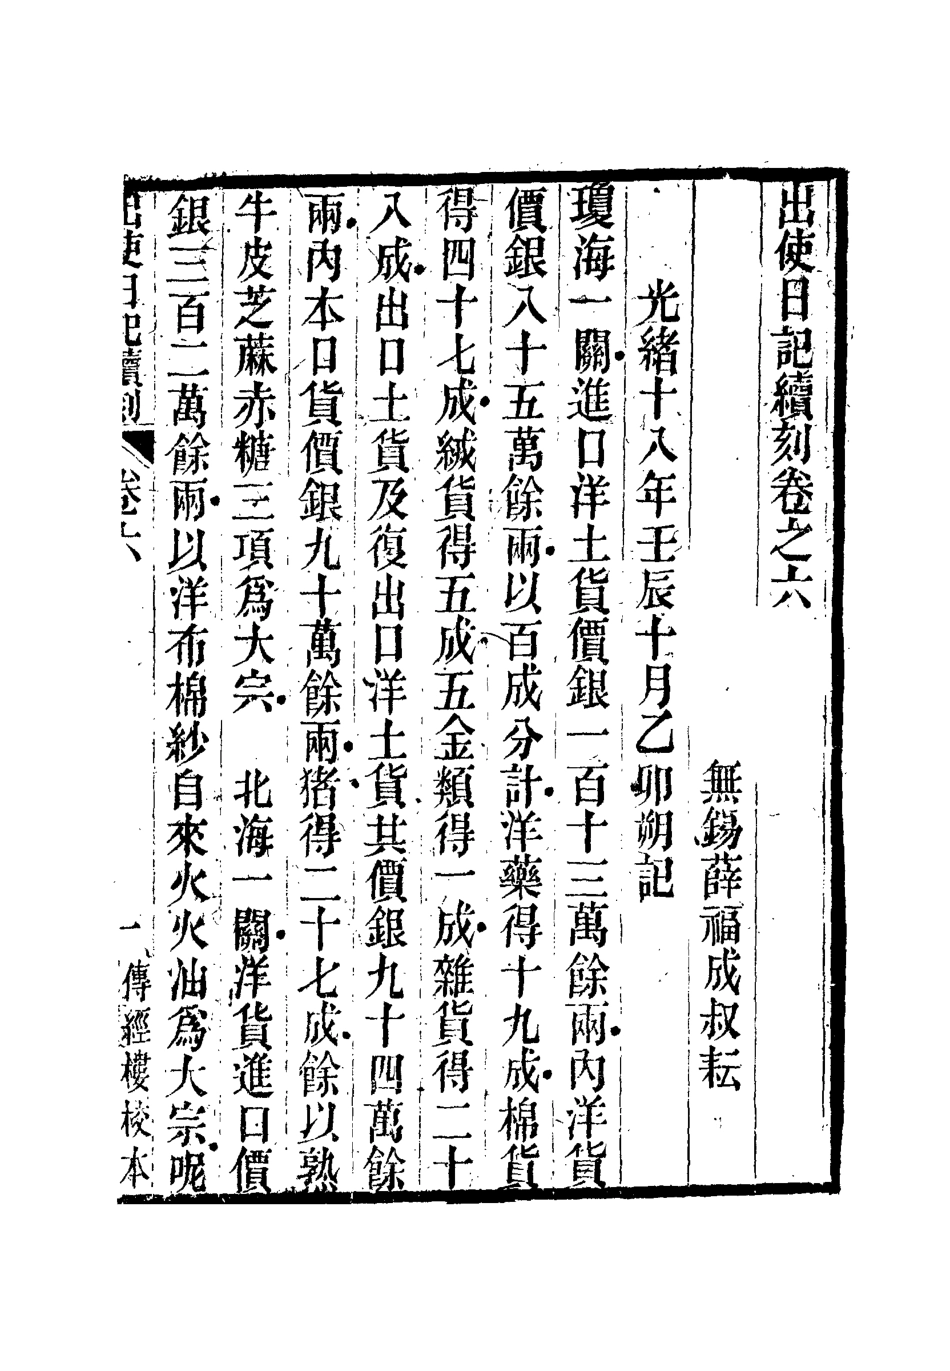 出使日記續刻卷之六
無錫薛福成叔耘
光緒十八年壬辰十月乙卯朔記
瓊海一關進口洋土貨價銀一百十三萬餘兩內洋貨
價銀八十五萬餘兩以百成分計洋藥得十九成棉貨
得四十七成絨貨得五成五金類得一成雜貨得二十
八成出口土貨及復出口洋土貨共價銀九十四萬餘
兩內本口貨價銀九十萬餘兩猪得二十七成餘以熟
牛皮芝蔴赤糖三項爲大宗 北海一關洋貨進口價
銀三百二萬餘兩以洋布棉紗自來火火油爲大宗呢
出使日記續刻 卷六 一 傳經樓校本